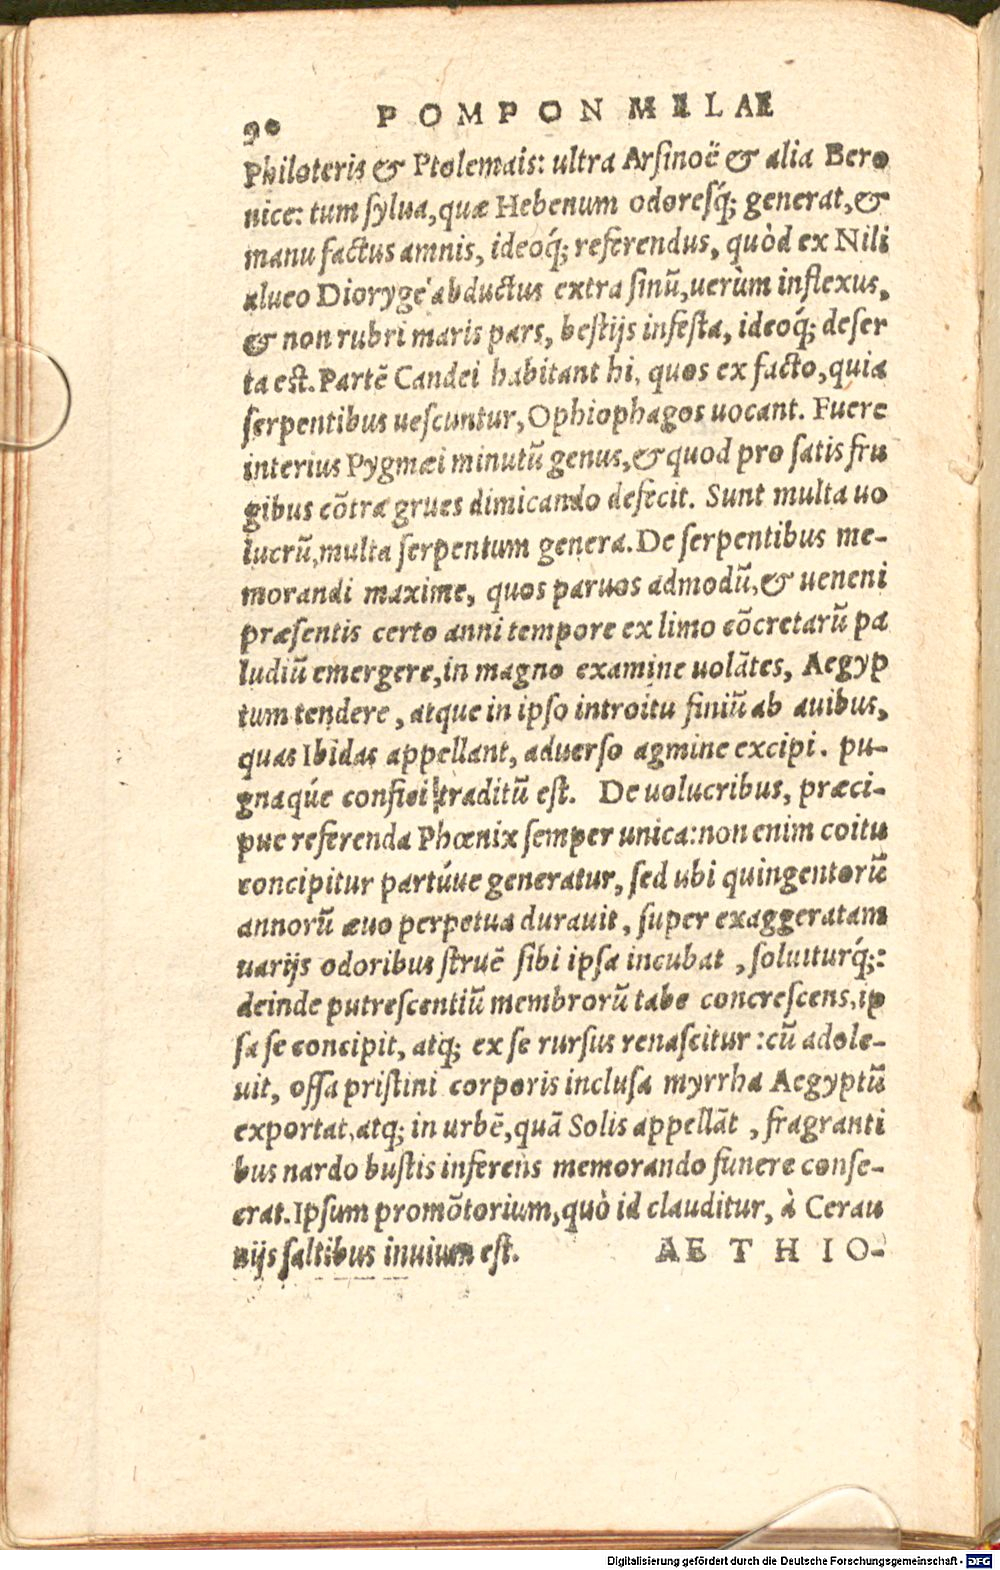 90 POMPON MELAE
Philoteris & Ptolemais: ultra Arsinoë & alia Bero
nice: tum sylua, quæ Hebenum odoresq́; generat, &
manu factus amnis, ideoq́; referendus, quòd ex Nili
alueo Dioryge abductus extra sinũ, uerùm inflexus,
& non rubri maris pars, bestijs infesta, ideoq́; deser
ta est. Partẽ Candei habitant hi, quos ex facto, quia
serpentibus uescuntur, Ophiophagos uocant. Fuere
interius Pygmæi minutũ genus, & quod pro satis fru
gibus cõtra grues dimicando defecit. Sunt multa uo
lucrũ, multa serpentum genera. De serpentibus me-
morandi maxime, quos paruos admodũ, & ueneni
præsentis certo anni tempore ex limo cõcretarũ pa
ludiũ emergere, in magno examine uolãtes, Aegyp
tum tendere, atque in ipso introitu finiũ ab auibus,
quas Ibidas appellant, aduerso agmine excipi. pu-
gnaq́ue confici traditũ est. De uolucribus, præci-
pue referenda Phœnix semper unica: non enim coitu
concipitur partúue generatur, sed ubi quingentorũ
annorũ æuo perpetua durauit, super exaggeratam
uarijs odoribus struẽ sibi ipsa incubat, soluiturq́;:
deinde putrescentiũ membrorũ tabe concrescens, ip
sa se concipit, atq; ex se rursus renascitur: cũ adole-
uit, ossa pristini corporis inclusa myrrha Aegyptũ
exportat, atq; in urbẽ, quã Solis appellãt, fragranti
bus nardo bustis inferens memorando funere conse-
crat. Ipsum promõtorium, quò id clauditur, à Cerau
nijs saltibus inuium est. AETHIO-
Digitalisierung gefördert durch die Deutsche Forschungsgemeinschaft - DFG